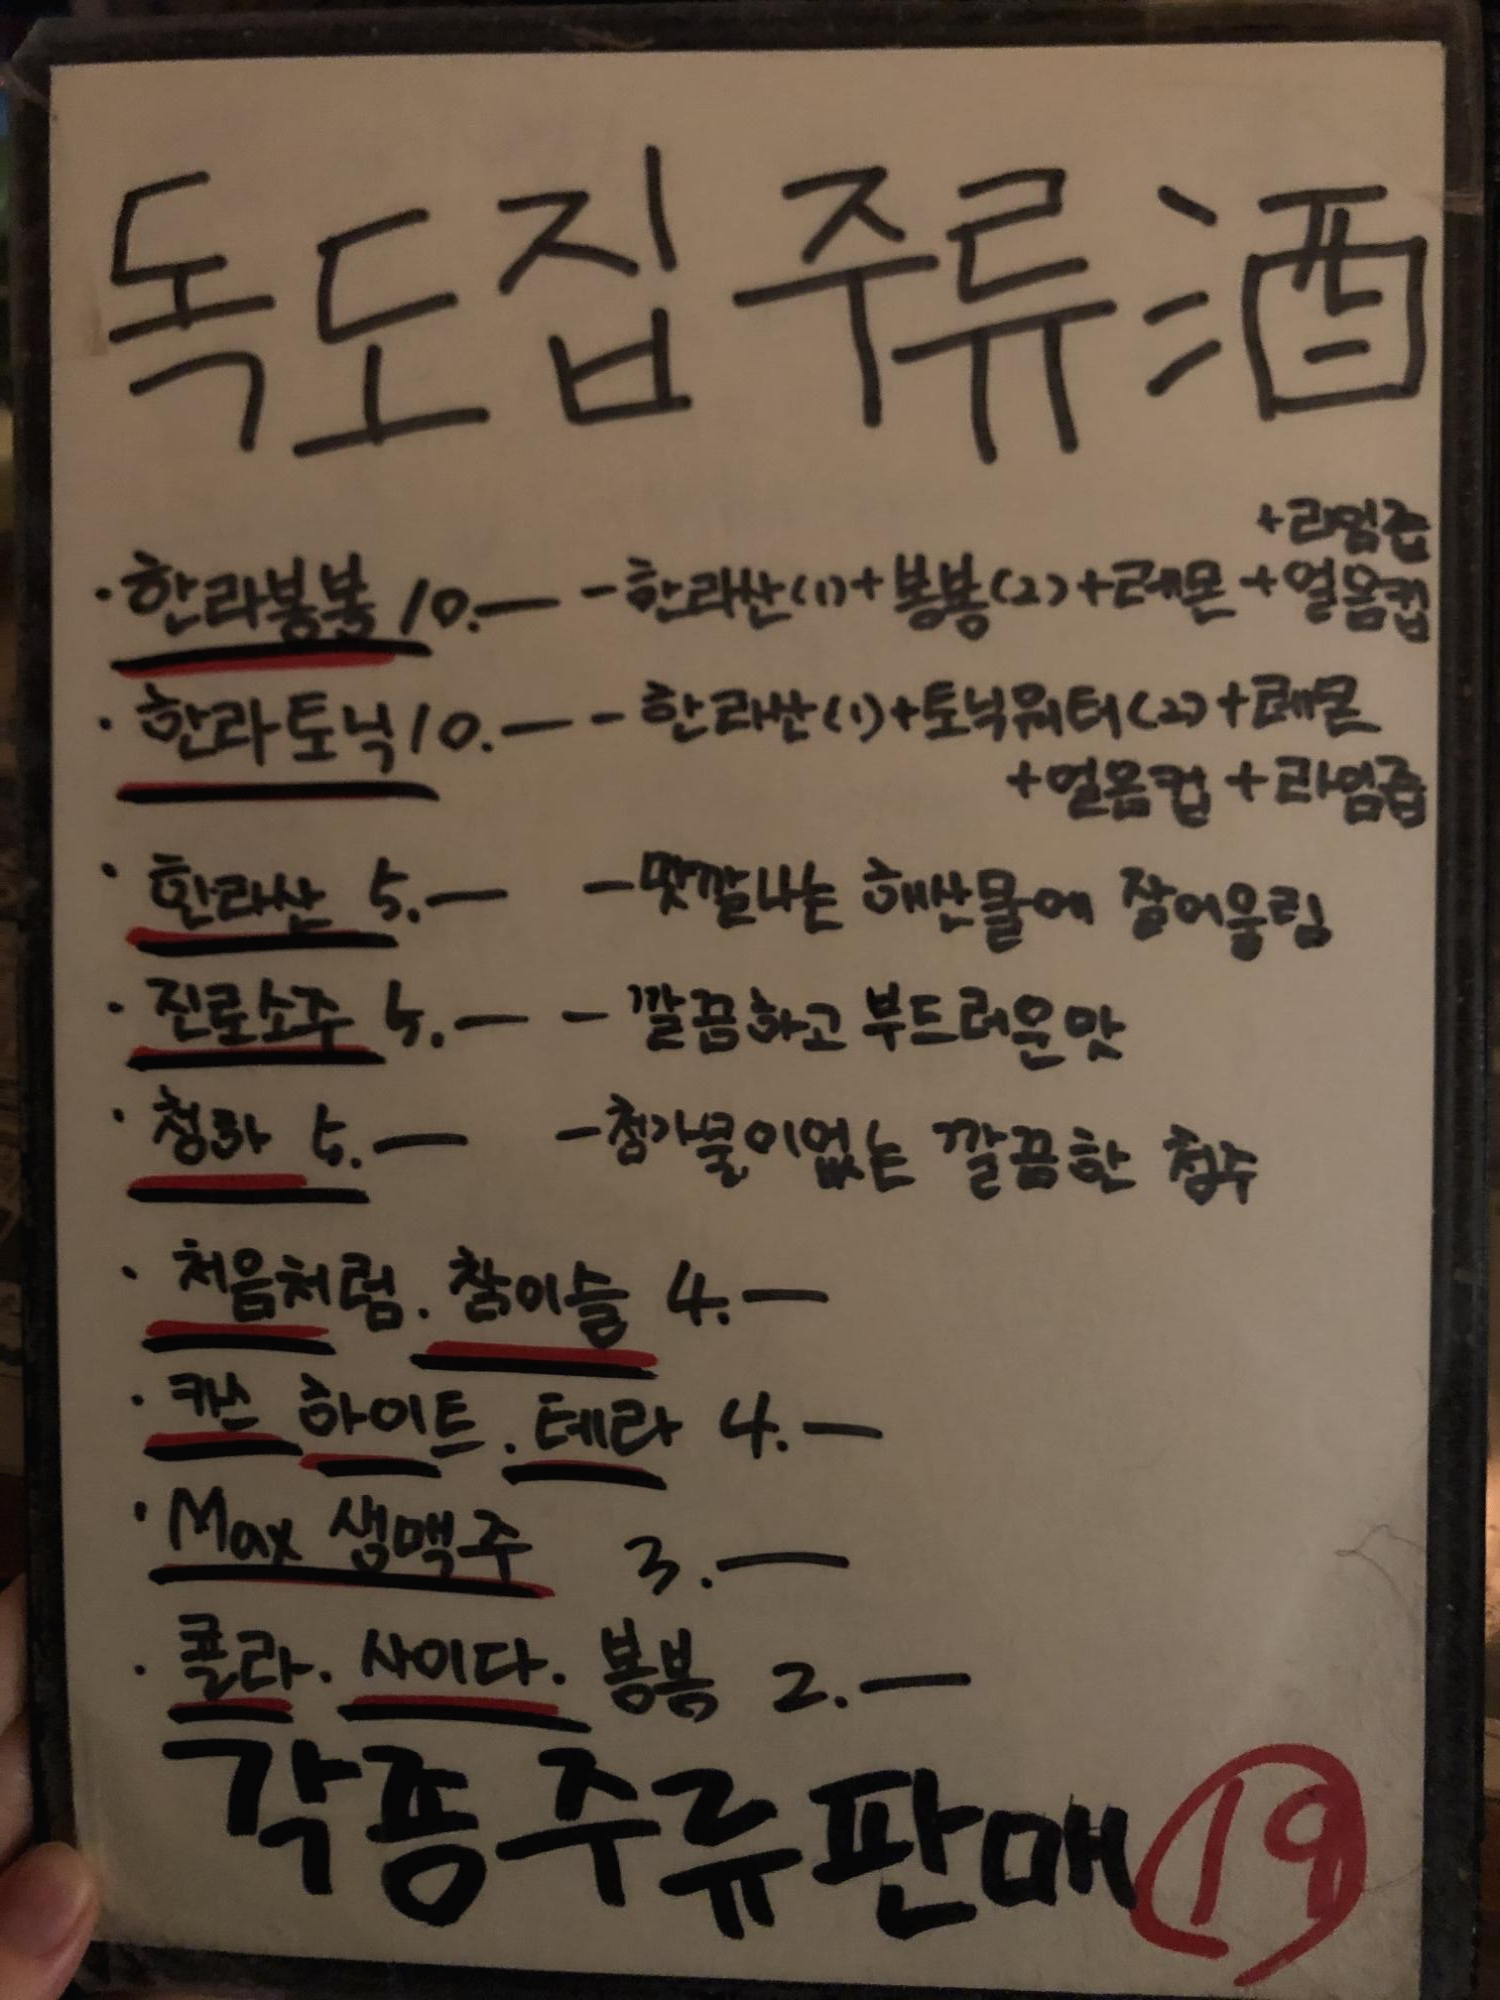 독도집 주류 酒
+라임즙
· 한라봉봉 10.— - 한라산(1)+봉봉(2)+레몬+얼음컵
· 한라토닉 10.— - 한라산(1)+토닉워터(2)+레몬
+얼음컵 +라임즙
· 한라산 5.— - 맛깔나는 해산물에 잘어울림
· 진로소주 4.— - 깔끔하고 부드러운맛
· 청하 5.— - 첨가물이없는 깔끔한 청주
· 처음처럼. 참이슬 4.—
· 카스 하이트. 테라 4.—
· Max 생맥주 3.—
· 콜라. 사이다. 봉봉 2.—
각종주류판매 19